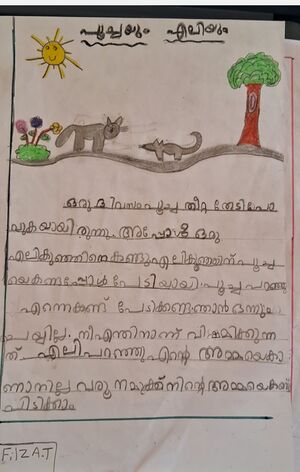 പൂച്ചയും എലിയും
ഒരു ദിവസം പൂച്ച തീറ്റ തേടിപോ
വുകയായിരുന്നു. അപ്പോൾ ഒരു
എലികുഞ്ഞിനെ കണ്ടു എലികുഞ്ഞിന് പൂച്ച
യെകണ്ടപ്പോൾ പേടിയായി. പൂച്ച പറഞ്ഞു
എന്നെകണ്ട് പേടിക്കണ്ട ഞാൻ ഒന്നും
ചെയ്യില്ല. നീ എന്തിനാണ് വിഷമിക്കുന്ന
ത്. എലി പറഞ്ഞു എന്റെ അമ്മയെകാ
ണാനില്ല വരൂ നമുക്ക് നിന്റെ അമ്മയെകണ്ടു
പിടിക്കാം
FilZA.T